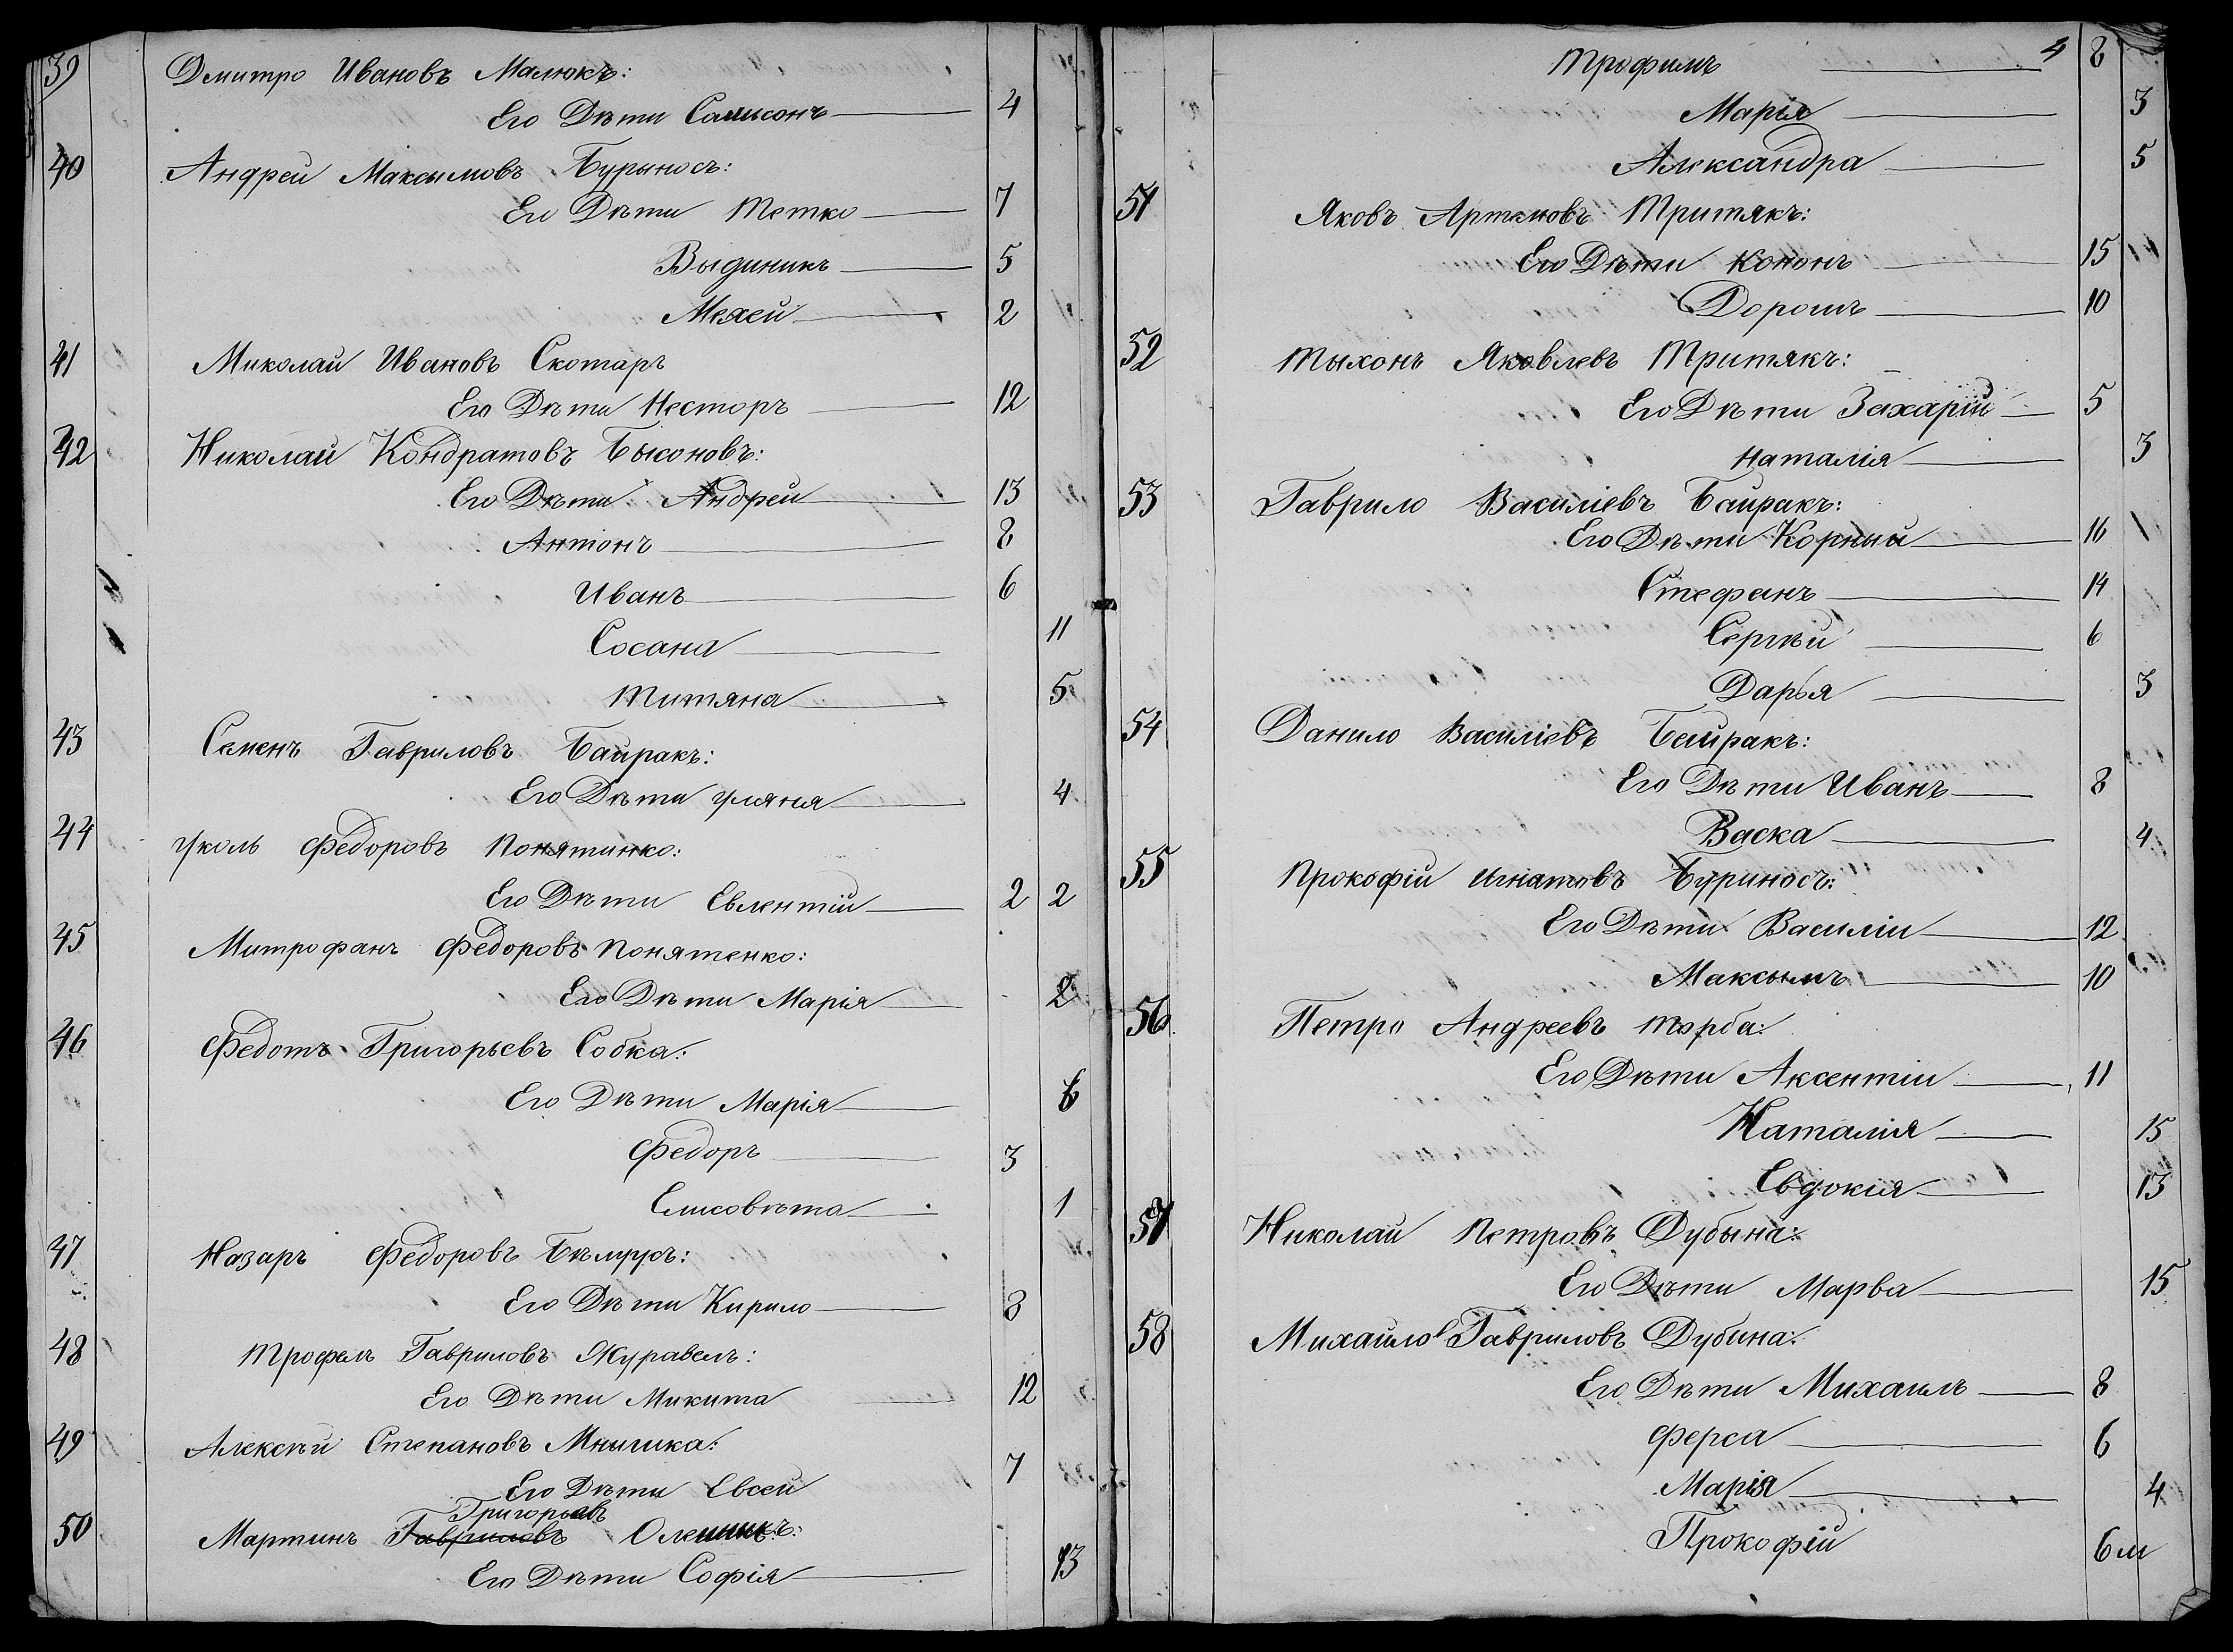 39 Дмитро Ивановъ Малюкъ:
Его Дѣти Самсонъ 4
40 Андрей Максимовъ Бурыносъ:
Его Дѣти Метко 7
5
Мехей 2
41 Миколай Ивановъ Скотаръ
Его Дѣти Несторъ 12
42 Николай Кондратовъ Бысоновъ:
Его Дѣти Андрей 13
Антонъ 8
Иванъ 6
Сосана 11
Титяна 5
43 Семенъ Гавриловъ Байракъ:
Его Дѣти Уляня 4
44 Федоровъ Понятинко:
Его Дѣти Евлентій 2 2
45 Митрофанъ Федоровъ Понятенко:
Его Дѣти Марія 2
46 Федотъ Григорьевъ Собка:
Его Дѣти Марія 6
Федоръ 3
Елисовѣта 1
47 Назаръ Федоровъ Бѣлиусъ:
Его Дѣти Кирило 8
48 Трофемъ Гавриловъ Журавель:
Его Дѣти Микита 12
49 Алексѣй Степановъ Мнишка:
Его Дѣти Евсей 7
Григорьевъ
50 Мартинъ Гавриловъ Олешикъ:
Его Дѣти Софія 13
4
Трофимъ 8
Марія 3
Александра 5
51 Яковъ Артемовъ Тритякъ:
Его Дѣти Кононъ 15
Дорошъ 10
52 Тыхонъ Яковлевъ Тритякъ:
Его Дѣти Захарій 5
Наталія 3
53 Гаврило Василіевъ Байракъ:
Его Дѣти Корний 16
Стефанъ 14
Сергѣй 6
Дарья 3
54 Данило Василіевъ Байракъ:
Его Дѣти Иванъ 8
Васка 4
55 Прокофій Игнатовъ Буриносъ:
Его Дѣти Василій 12
Максымъ 10
56 Петро Андреевъ Торба:
Его Дѣти Аксентій 11
Наталія 15
Евдокія 13
57 Николай Петровъ Дубына:
Его Дѣти Марва 15
58 Михайло Гавриловъ Дубина:
Его Дѣти Михаилъ 8
Ферса 6
Марія 4
Прокофій 6 м